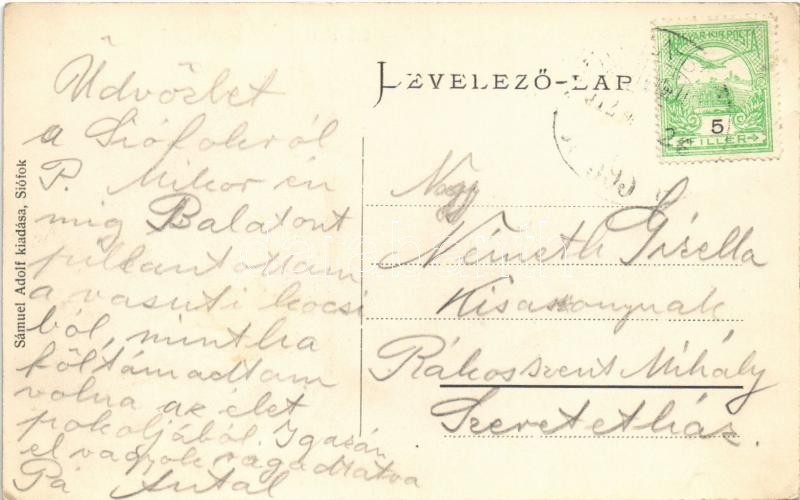 Üdvözlet
a Siófokról
P. Mikor én
mig Balatont
pillantottam
a vasuti kocsi
ból, mintha
föltámadtam
volna az élet
pokoljából. Igazán
el vagyok ragadtatva
Pá Antal
Sámuel Adolf kiadása, Siófok
LEVELEZŐ-LAP
MAGYAR·KIR·POSTA
5
FILLÉR
Nagy
Németh Gizella
Kisasszonynak
Rákosszent Mihály
Szeretetház.